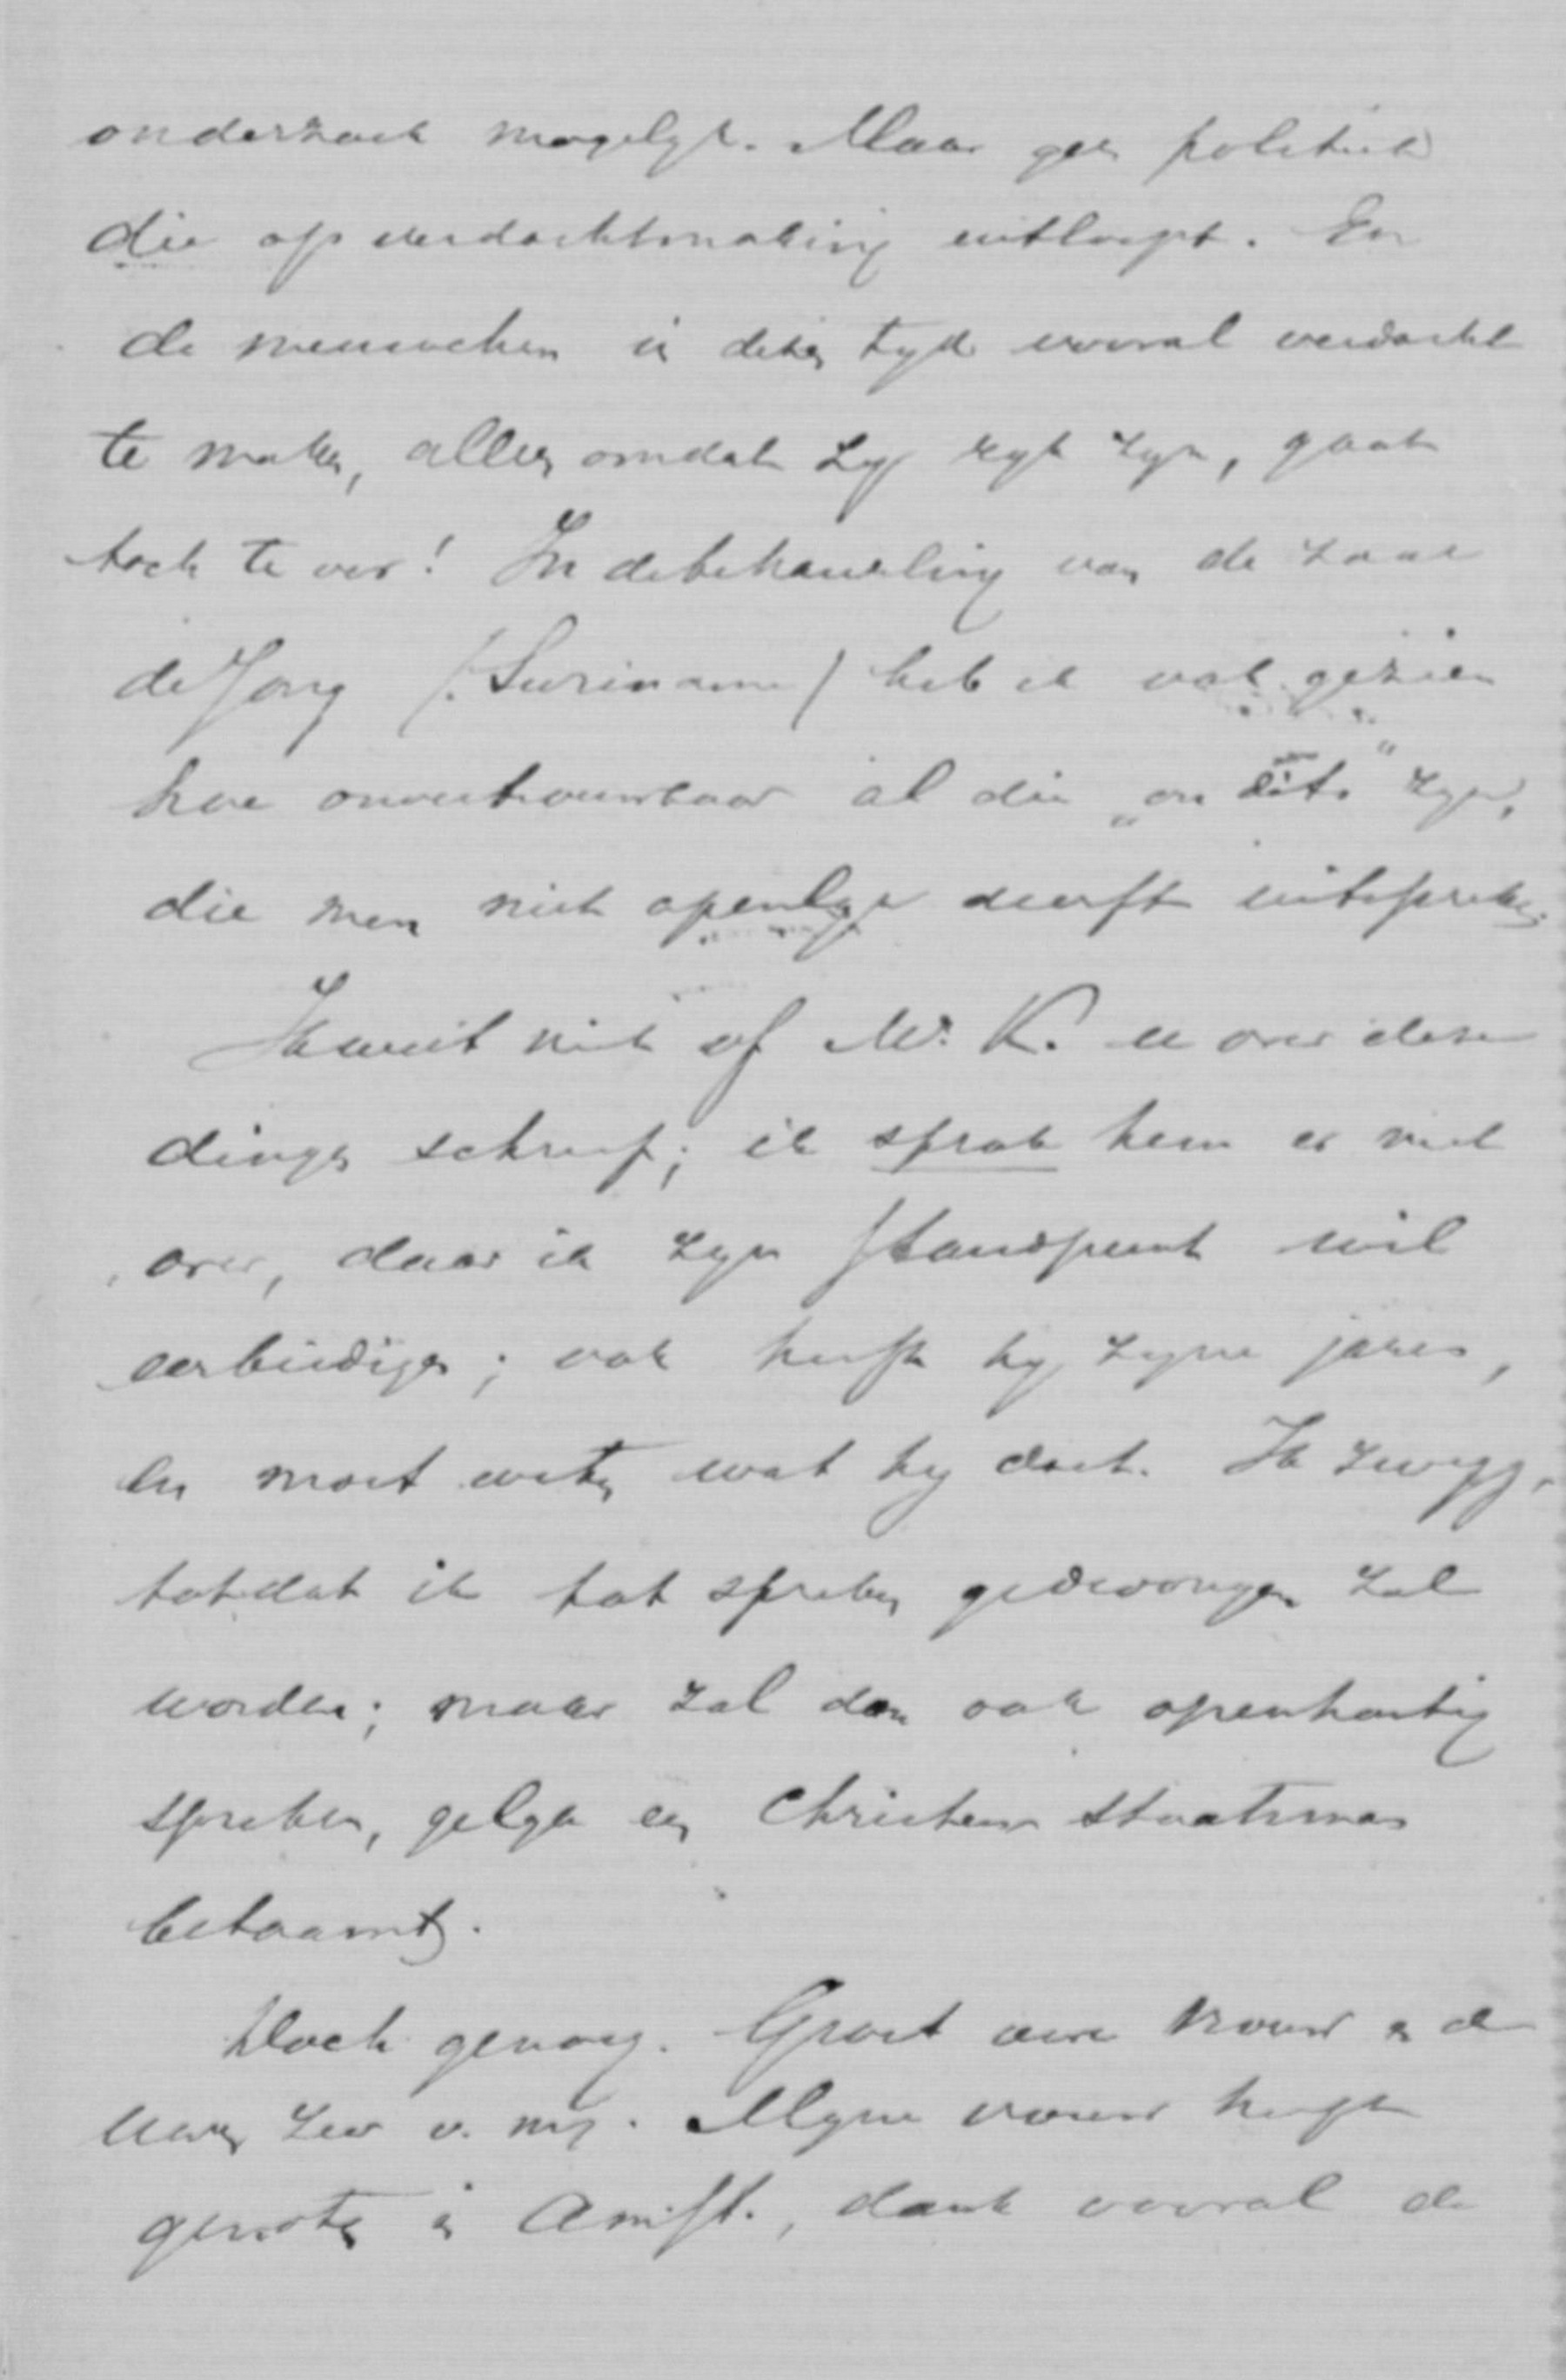 onderzoek mogelyk. Maar geen politiek
die op verdachtmaking uitloopt. En
de menschen in dezen tyd vooral verdacht
te maken, alleen omdat zy ryk zyn, gaat
toch te ver! In de behandeling van de zaak
de Jong (Suriname) heb ik ook gezien
hoe onvertrouwbaar al die „on dits" zyn,
die men niet openlyk durft uitspreken.
Ik weet niet of Mr. K. u over deze
dingen schreef; ik sprak hem er niet
over, daar ik zyn standpunt wil
eerbiedigen; ook heeft hy zyne jaren,
en moet weten wat hy doet. Ik zwyg,
totdat ik tot spreken gedwongen zal
worden; maar zal dan ook openhartig
spreken, gelyk een Christen staatsman
betaamt.
Doch genoeg. Groet uwe vrouw en de
uwen zeer v. my. Myne vrouw heeft
genoten in Amst., dank vooral de